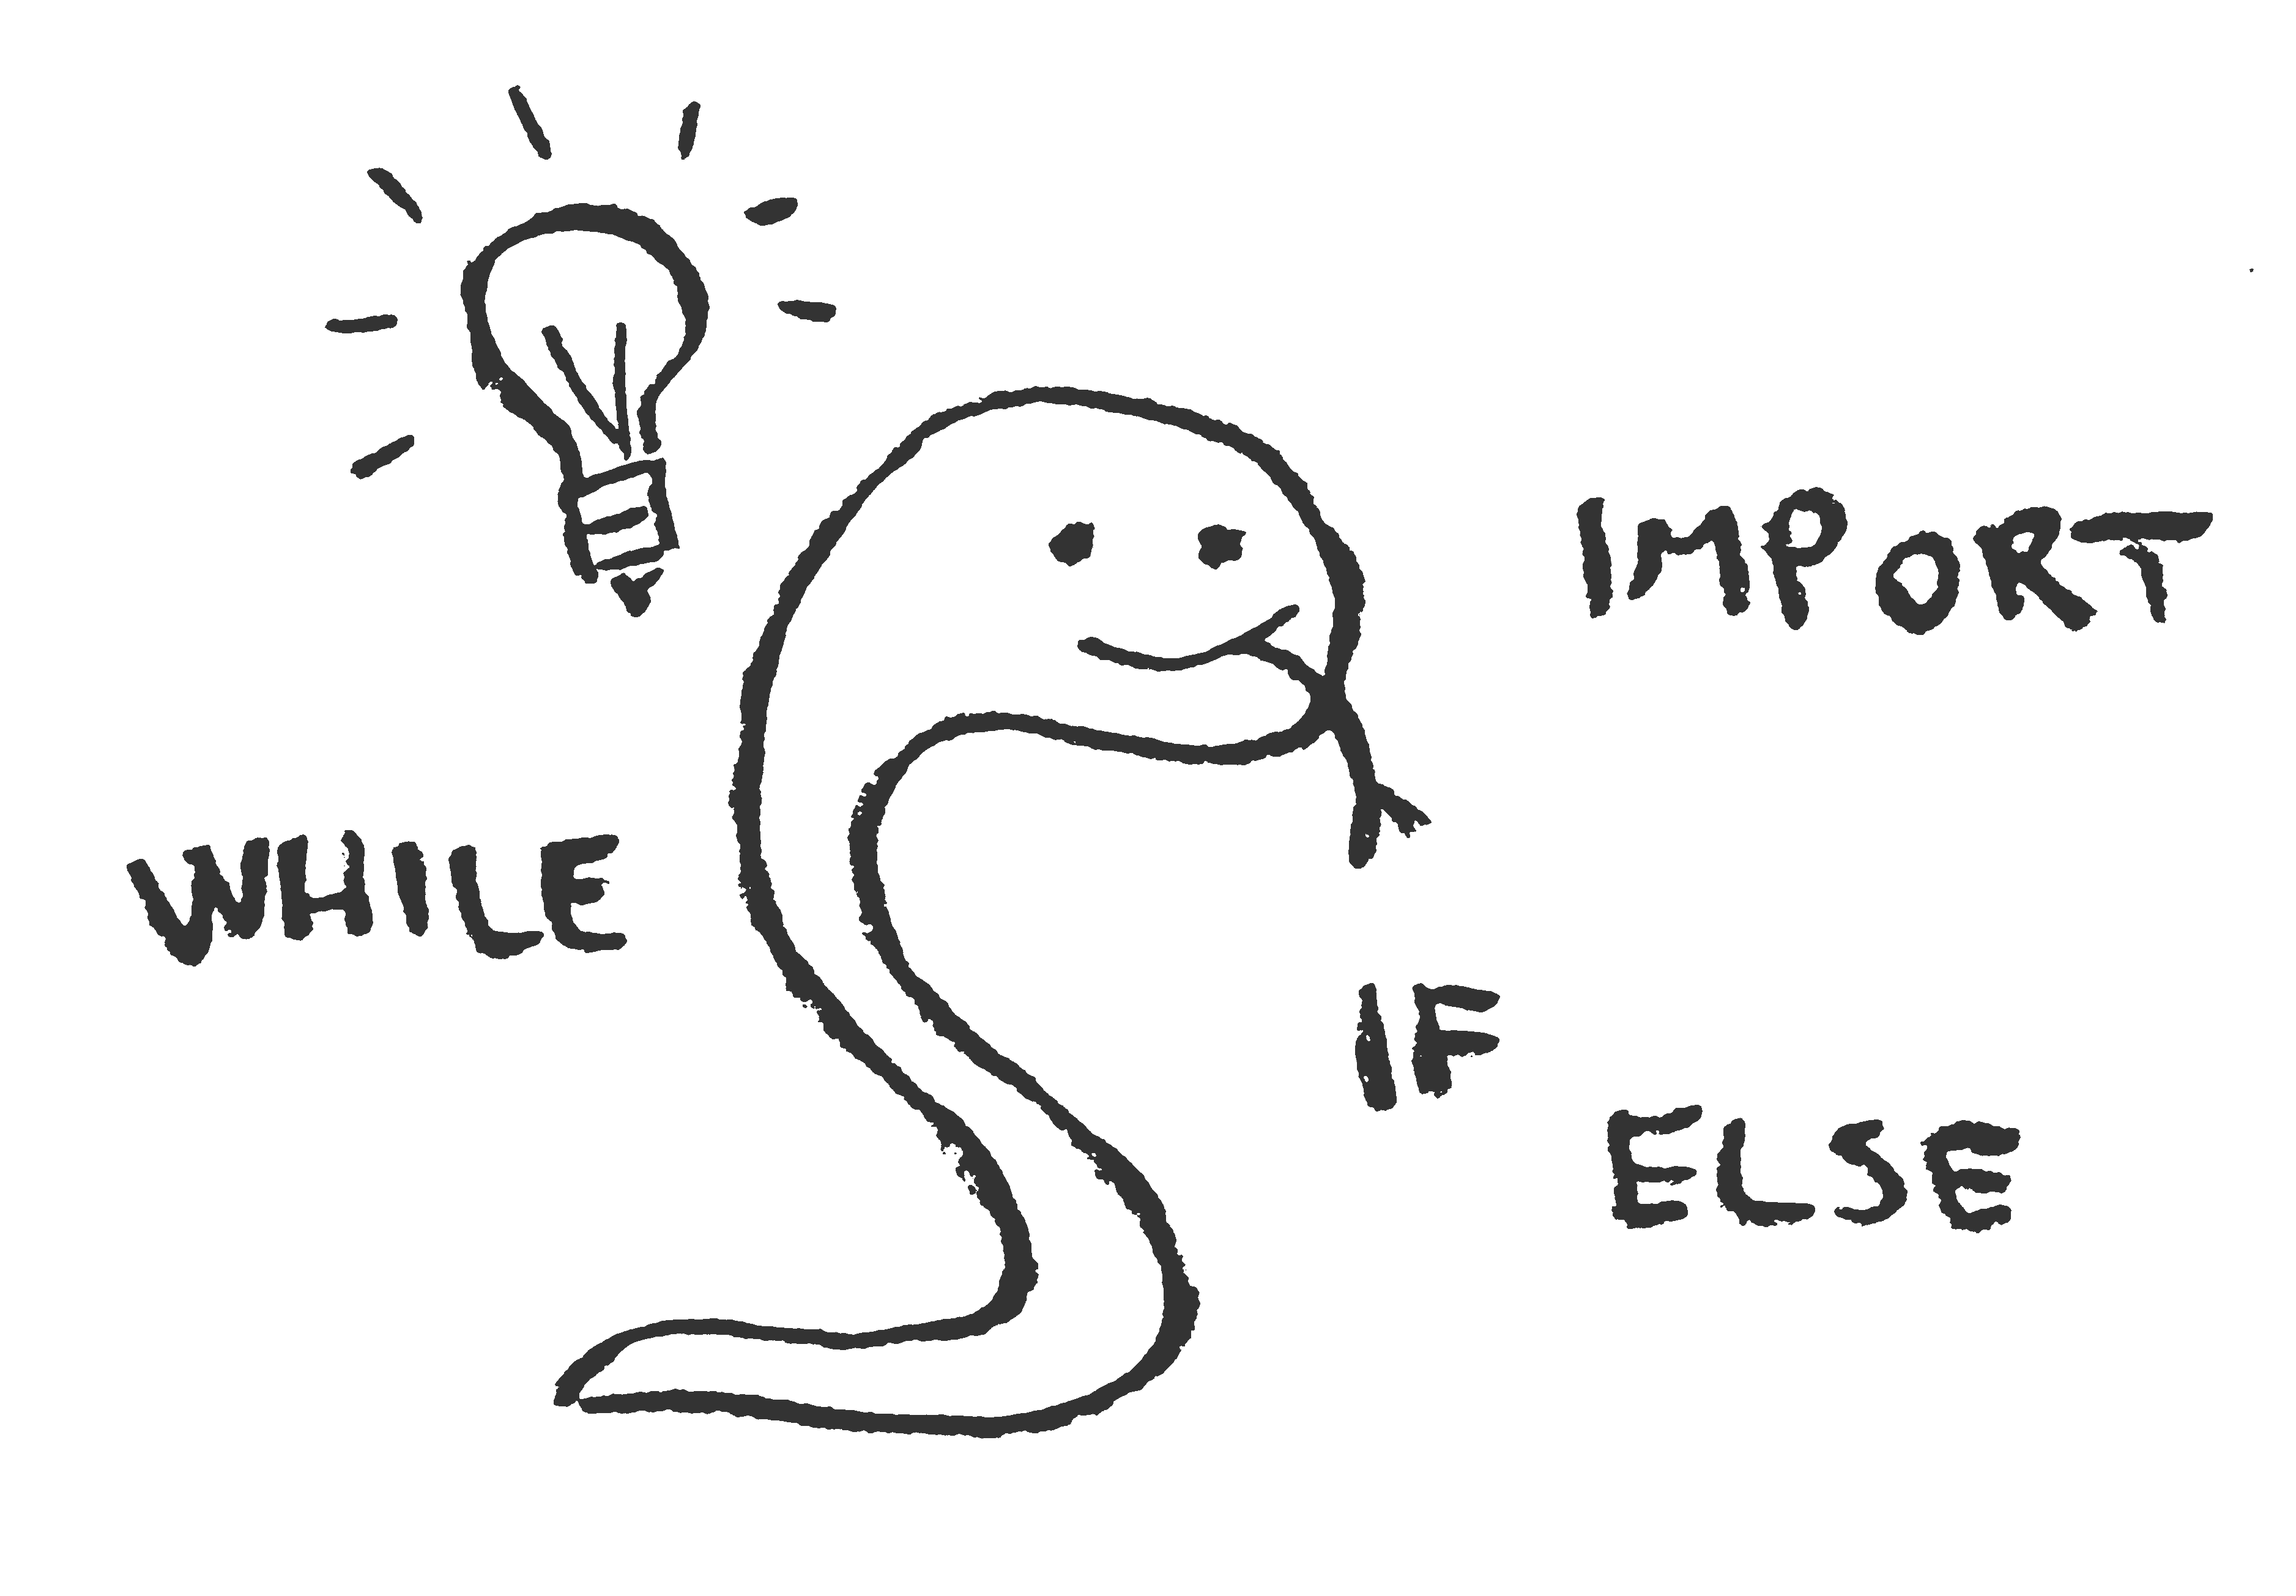 IMPORT
WHILE
IF
ELSE